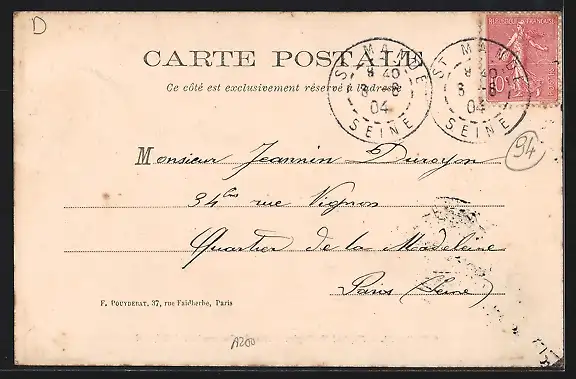 D
CARTE POSTALE
Ce côté est exclusivement réservé à l'adresse
RÉPUBLIQUE FRANÇAISE
10
ST MANDÉ
9 40
8 - 8
04
SEINE
ST MANDÉ
9 40
8 - 8
04
SEINE
94
Monsieur Jeannin Duroyon
34 bis rue Vignon
Quartier de la Madeleine
Paris (Seine)
F. POUYDEBAT, 37, rue Faidherbe, Paris
A200